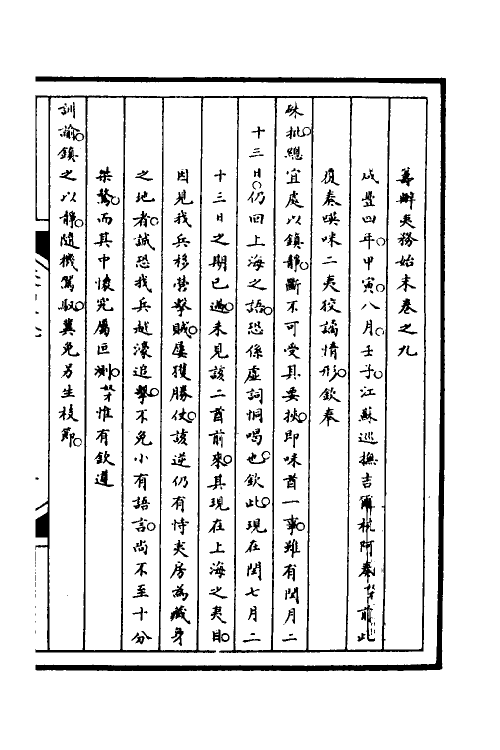 籌辦夷務始末卷之九
咸豐四年甲寅八月壬子江蘇巡撫吉爾杭阿奏竊前此
復奏㗸咪二夷狡譎情形欽奉
硃批總宜處以鎮靜斷不可受其要挾即咪酋一事雖有閏月二
十三日仍回上海之語恐係虛詞恫喝也欽此現在閏七月二
十三日之期已過未見該二酋前來其現在上海之夷目
因見我兵移營擊賊屢獲勝仗該逆仍有恃夷房為藏身
之地者誠恐我兵越濠追擊不免小有語言尚不至十分
桀驁而其中懷究屬叵測努惟有欽遵
訓諭鎮之以靜隨機駕馭冀免另生枝節